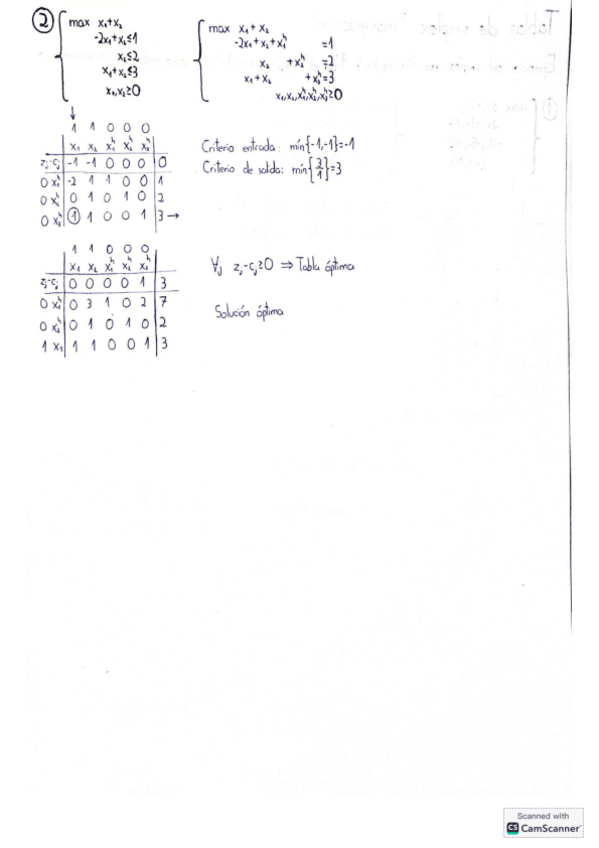 ② max x₁+x₂
-2x₁+x₂≤1
x₂≤2
x₁+x₂≤3
x₁,x₂≥0
max x₁+x₂
-2x₁+x₂+x₁ʰ =1
x₂ +x₂ʰ =2
x₁+x₂ +x₃ʰ=3
x₁,x₂,x₁ʰ,x₂ʰ,x₃ʰ≥0
↓
1 1 0 0 0
x₁ x₂ x₁ʰ x₂ʰ x₃ʰ
zⱼ-cⱼ -1 -1 0 0 0 0
0 x₁ʰ -2 1 1 0 0 1
0 x₂ʰ 0 1 0 1 0 2
0 x₃ʰ ① 1 0 0 1 3 →
Criterio entrada: mín{-1,-1}=-1
Criterio de salida: mín{3/1}=3
1 1 0 0 0
x₁ x₂ x₁ʰ x₂ʰ x₃ʰ
zⱼ-cⱼ 0 0 0 0 1 3
0 x₁ʰ 0 3 1 0 2 7
0 x₂ʰ 0 1 0 1 0 2
1 x₁ 1 1 0 0 1 3
∀ⱼ zⱼ-cⱼ≥0 ⇒ Tabla óptima
Solución óptima
Scanned with
CS CamScanner